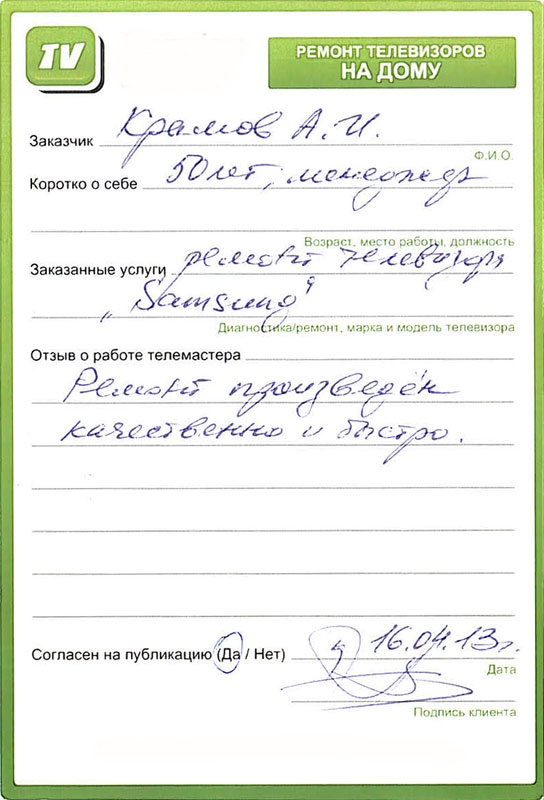 TV
РЕМОНТ ТЕЛЕВИЗОРОВ
НА ДОМУ
Заказчик Крамов А.И.
Ф.И.О.
Коротко о себе 50 лет, менеджер
Возраст, место работы, должность
Заказанные услуги ремонт телевизора
„Samsung“
Диагностика/ремонт, марка и модель телевизора
Отзыв о работе телемастера
Ремонт произведён
качественно и быстро.
Согласен на публикацию (Да / Нет) 16.04.13г.
Дата
Подпись клиента